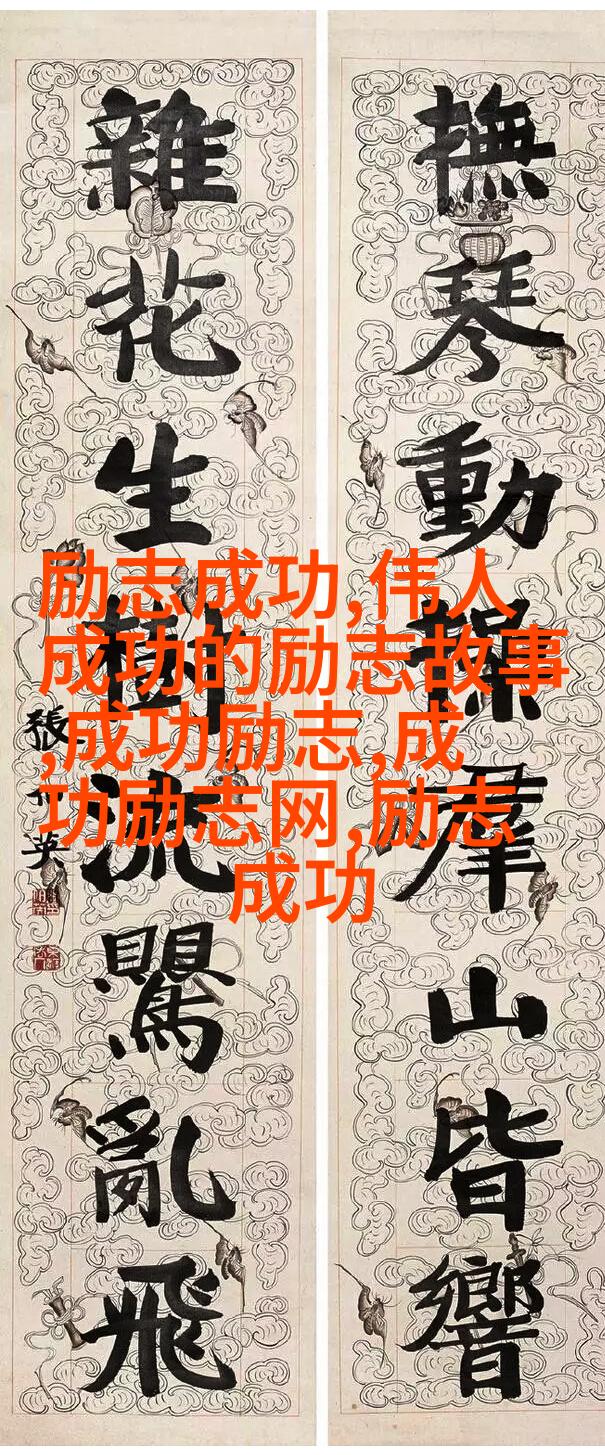 撫琴動操羣山皆響
雜花生樹流鸎亂飛
張
英
励志成功,伟人
成功的励志故事
,成功励志,成
功励志网,励志
成功